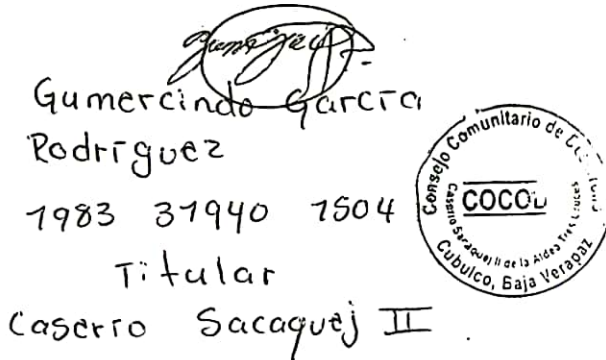 Gumercindo García
Rodríguez
1983 31940 1504
Titular
Caserío Sacaquej II
Consejo Comunitario de
COCOD
Caserío Sacaquej II de la Aldea Tres Cruces
Cubulco, Baja Verapaz